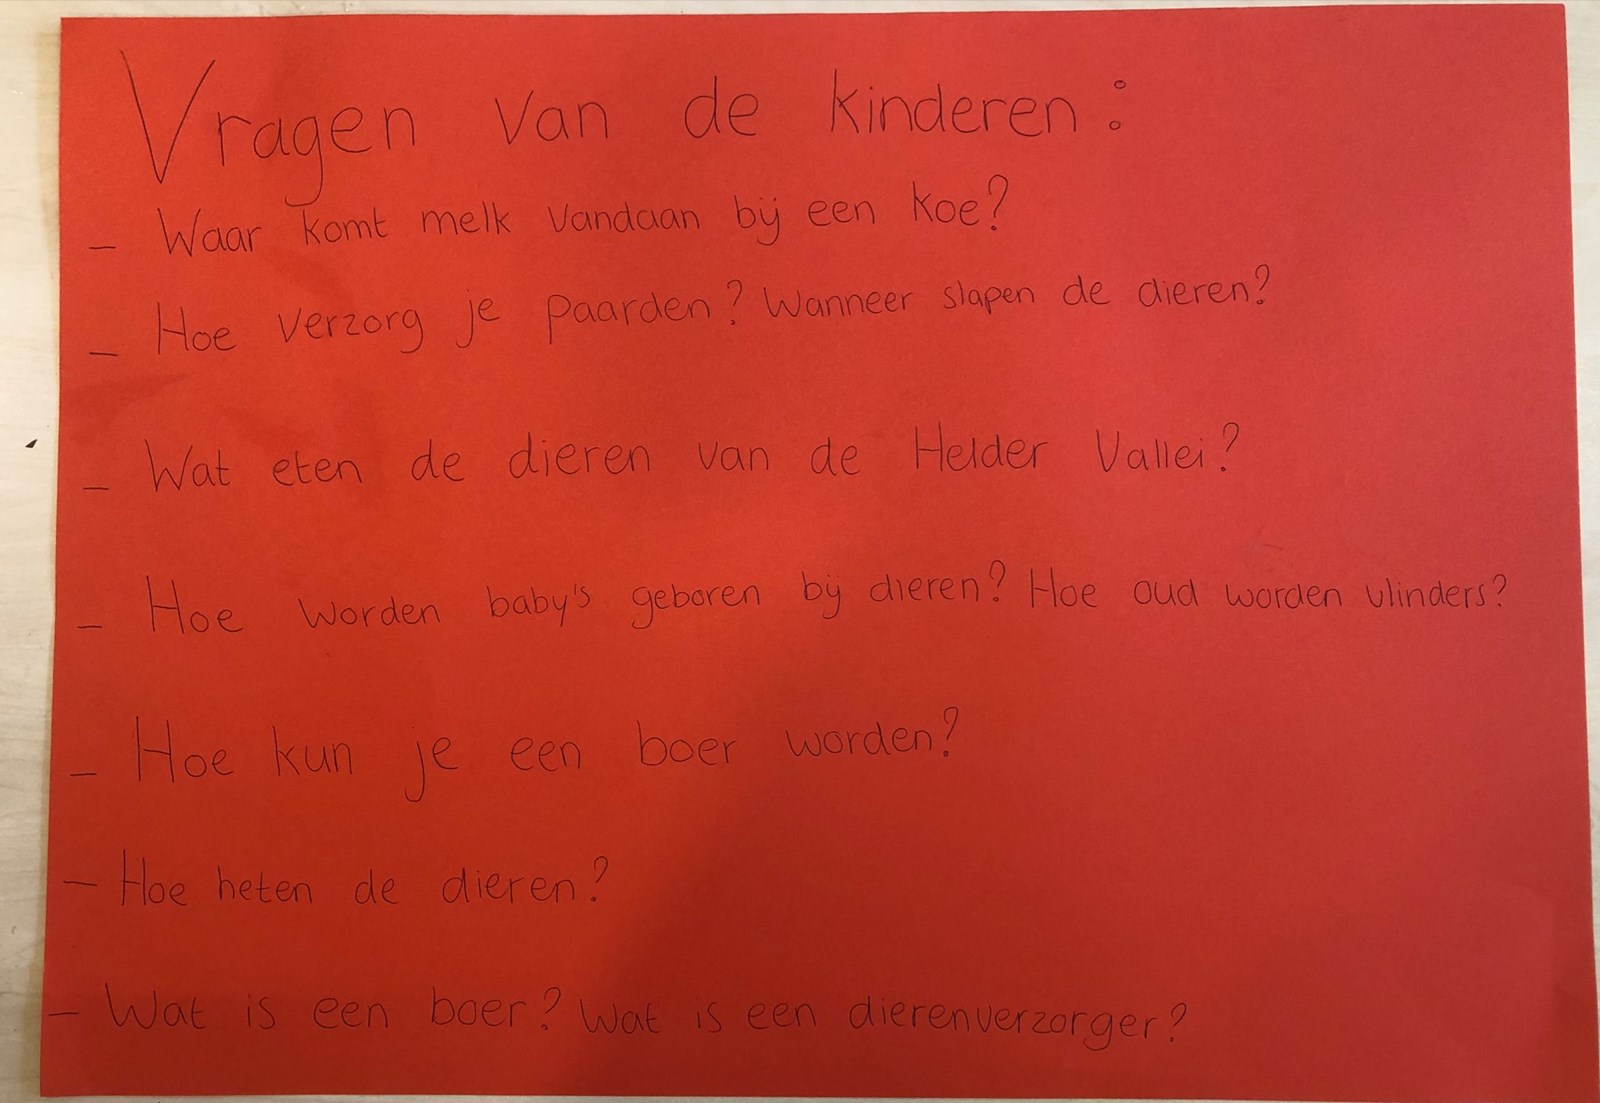 Vragen van de kinderen:
- Waar komt melk vandaan bij een koe?
- Hoe verzorg je paarden? Wanneer slapen de dieren?
- Wat eten de dieren van de Helder Vallei?
- Hoe worden baby's geboren bij dieren? Hoe oud worden vlinders?
- Hoe kun je een boer worden?
- Hoe heten de dieren?
- Wat is een boer? Wat is een dierenverzorger?